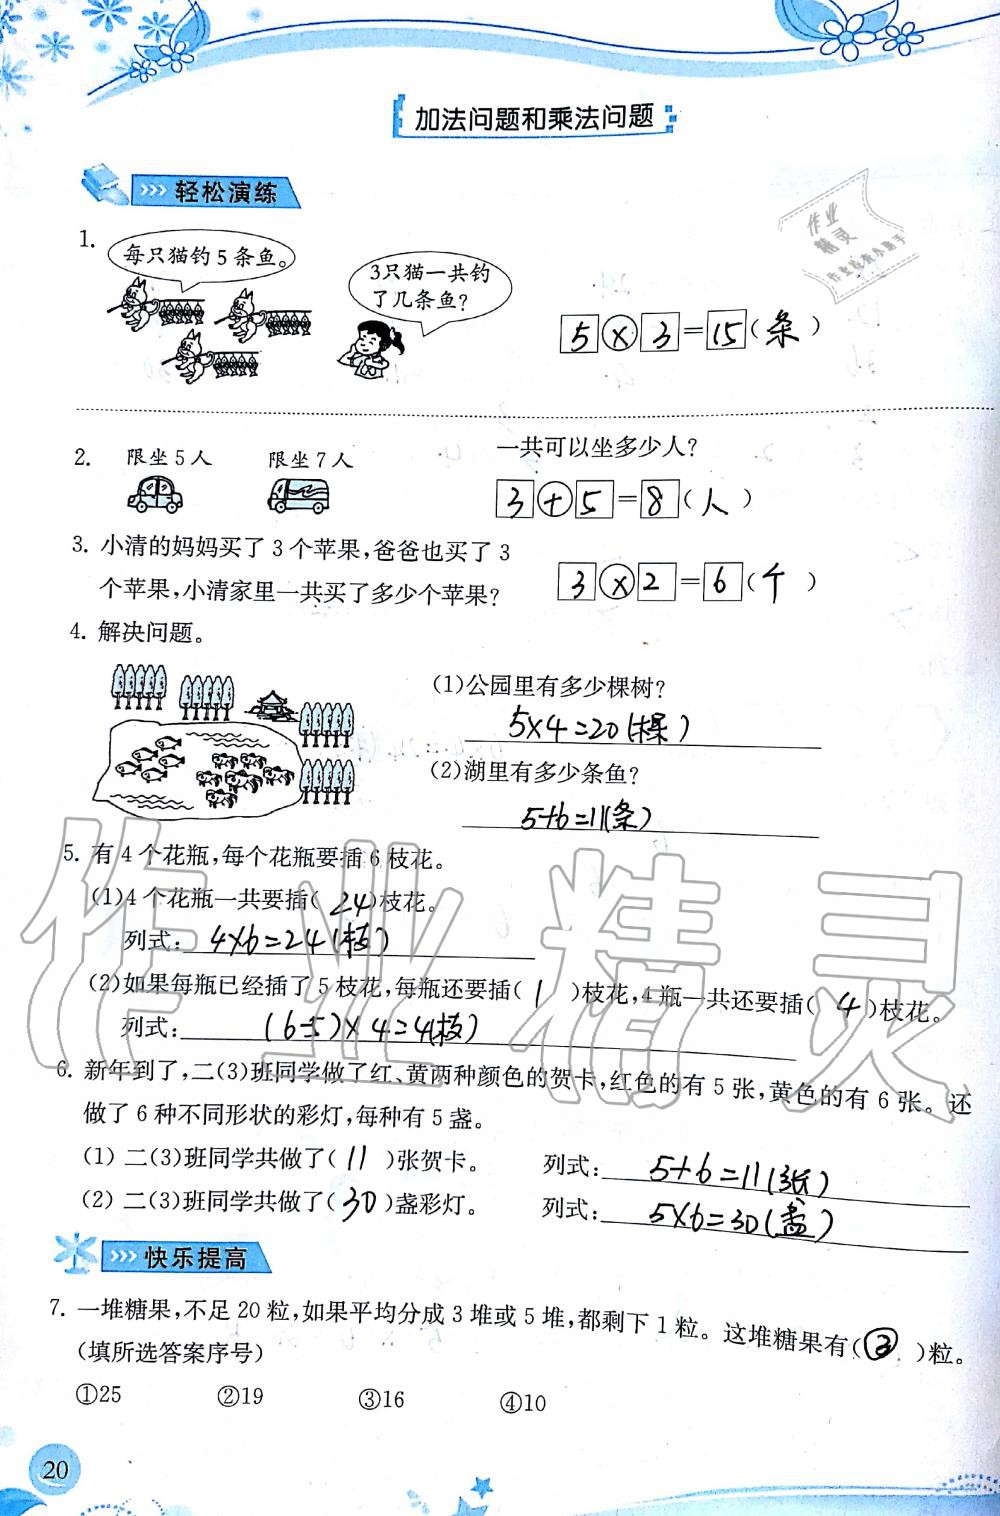 加法问题和乘法问题
轻松演练
1. 每只猫钓5条鱼。
3只猫一共钓
了几条鱼?
5×3=15(条)
作业
精灵
作业检查小助手
2. 限坐5人 限坐7人 一共可以坐多少人?
3+5=8(人)
3. 小清的妈妈买了3个苹果,爸爸也买了3
个苹果,小清家里一共买了多少个苹果?
3×2=6(个)
4. 解决问题。
(1)公园里有多少棵树?
5×4=20(棵)
(2)湖里有多少条鱼?
5+6=11(条)
5. 有4个花瓶,每个花瓶要插6枝花。
(1)4个花瓶一共要插(24)枝花。
列式: 4×6=24(枝)
(2)如果每瓶已经插了5枝花,每瓶还要插(1)枝花,4瓶一共还要插(4)枝花。
列式: (6-5)×4=4(枝)
作业精灵
6. 新年到了,二(3)班同学做了红、黄两种颜色的贺卡,红色的有5张,黄色的有6张。还
做了6种不同形状的彩灯,每种有5盏。
(1) 二(3)班同学共做了(11)张贺卡。 列式: 5+6=11(张)
(2) 二(3)班同学共做了(30)盏彩灯。 列式: 5×6=30(盏)
快乐提高
7. 一堆糖果,不足20粒,如果平均分成3堆或5堆,都剩下1粒。这堆糖果有(③)粒。
(填所选答案序号)
①25 ②19 ③16 ④10
20